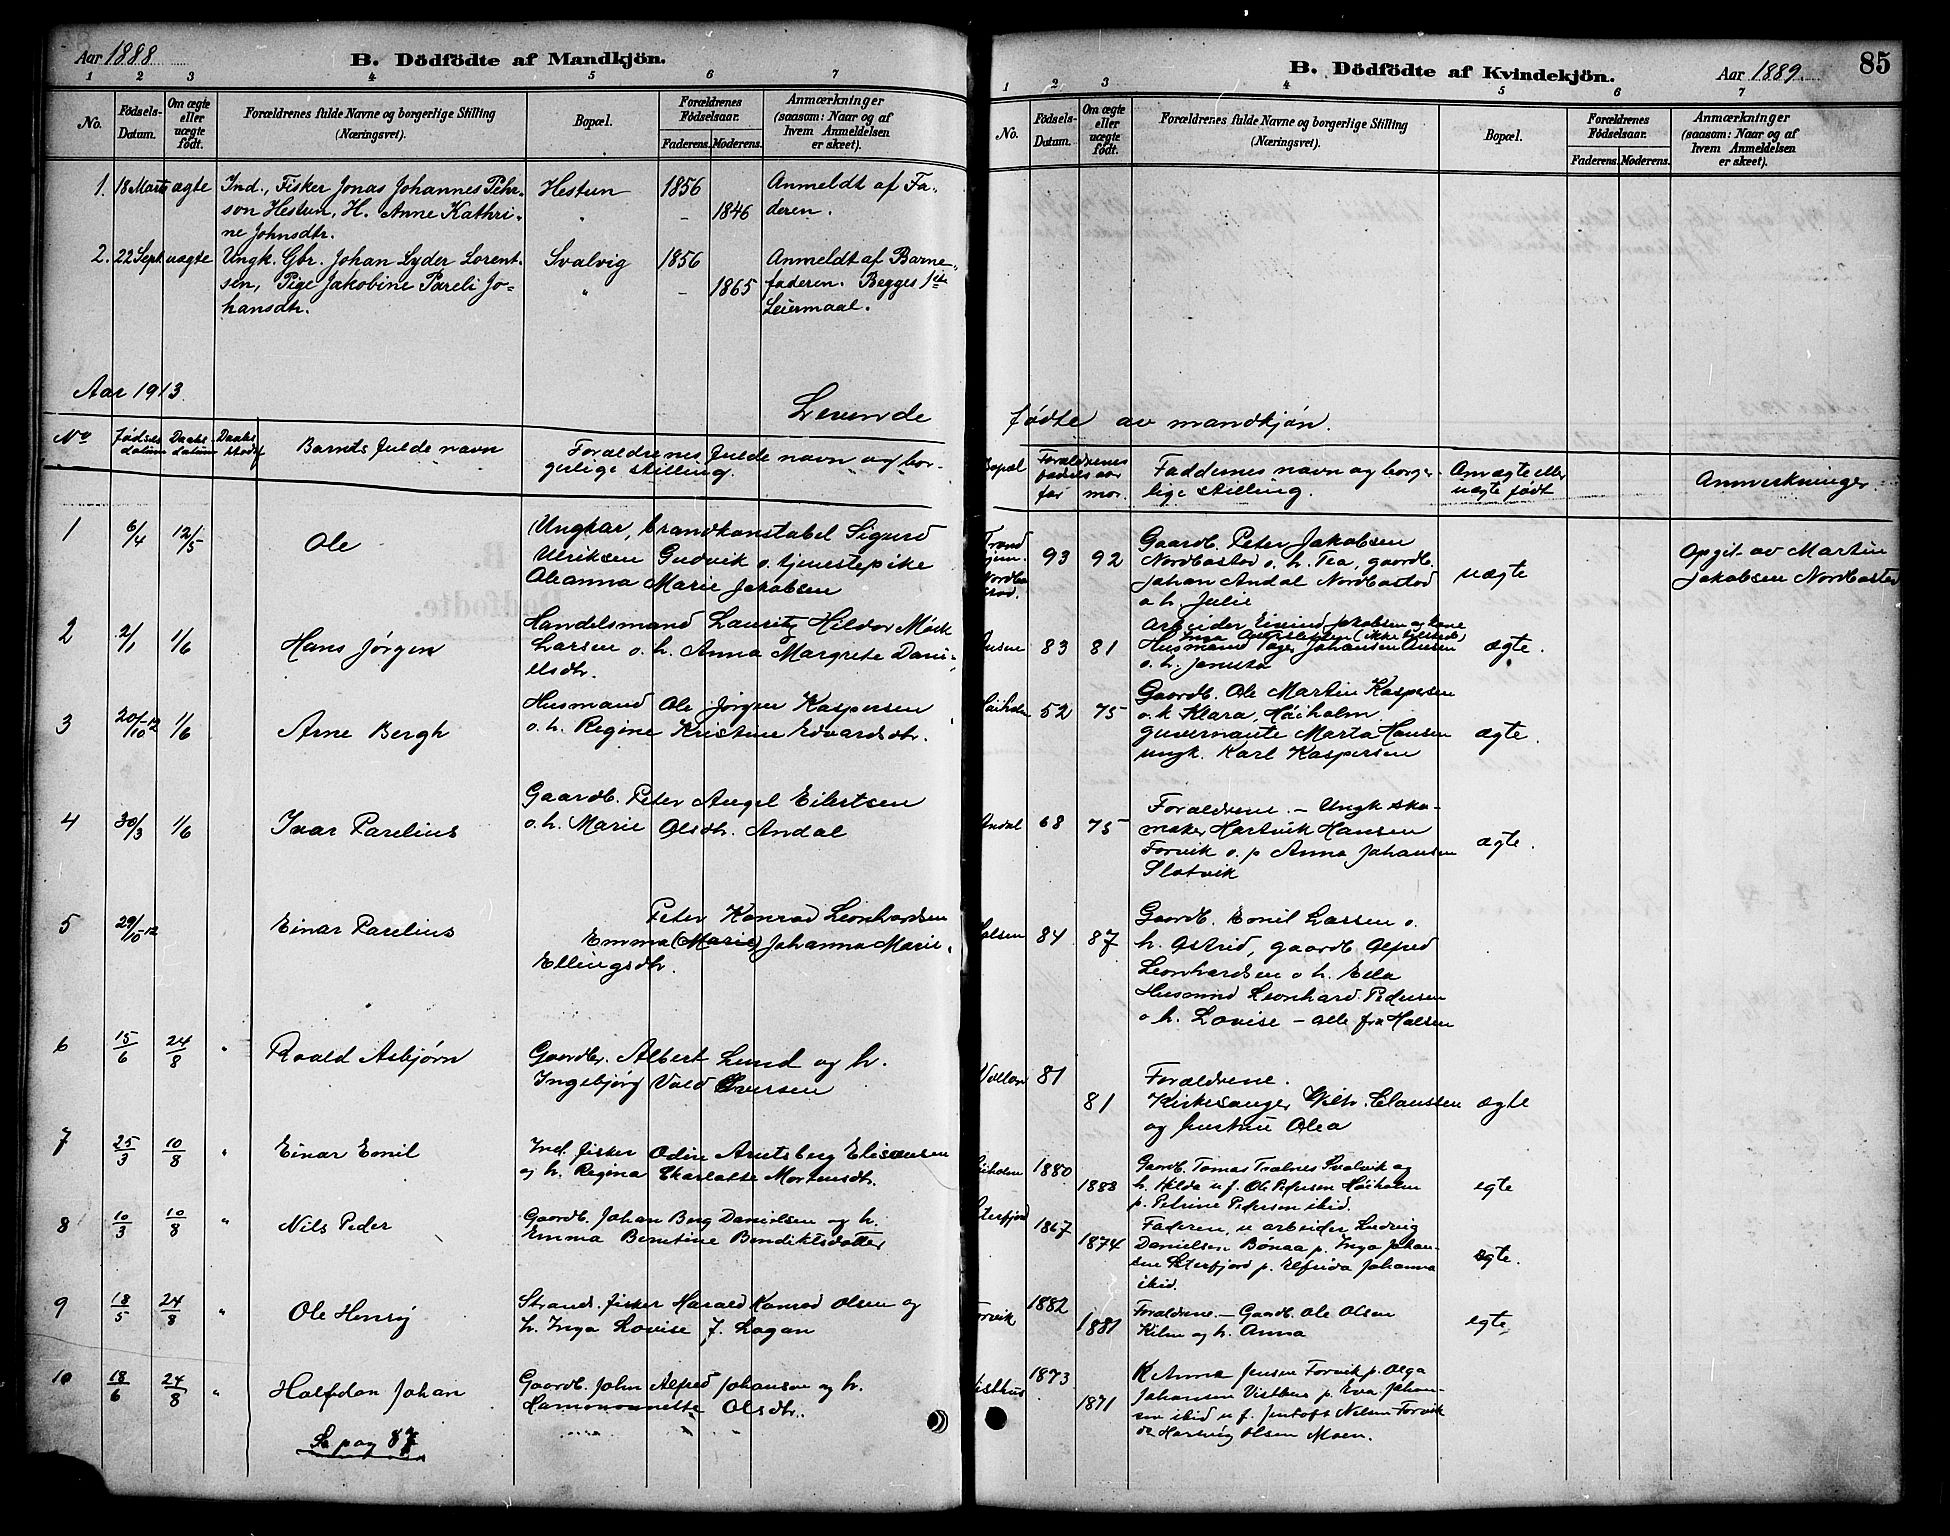 Aar 1888
B. Dödfödte af Mandkjön.
1 2 3 4 5 6 7
No.
Födsels-Datum.
Om ægte eller uægte födt.
Forældrenes fulde Navne og borgerlige Stilling
(Næringsvei).
Bopæl.
Forældrenes Födselsaar.
Faderens. Moderens.
Anmærkninger
(saasom: Naar og af
hvem Anmeldelsen
er skeet).
1. 18 Marts ægte Ind., Fisker Jonas Johannes Pehr- Hestun 1856 Anmeldt af Fa-
son Hestun, H. Anne Kathri- " - 1846 deren.
ne Johnsdtr.
2. 22 Sept. uægte Ungk. Gbr. Johan Lyder Lorent- Svalvig 1856 Anmeldt af Barne-
sen, Pige Jakobine Pareli Jo- " - 1865 faderen. Begges 1ste
hansdtr. Leiermaal.
Aar 1913.
Levende
No Fødsels datum Daabs datum Daabs sted Barnets fulde navn Forældrenes fulde navn og bor-
gerlige stilling.
1 6/4 12/5 Ole Ungkar, brandkonstabel Sigurd
Ulriksen Gudvik o. tjenestepike
Oleanna Marie Jakobsen
2 2/1 1/6 Hans Jørgen Handelsmand Lauritz Hildor Mørk
Larsen o. h. Anna Margrete Dani-
elsdtr.
3 20/10-12 1/6 Arne Bergh Husmand Ole Jørgen Kaspersen
o. h. Regine Kristine Edvardsdtr.
4 30/3 1/6 Ivar Parelius Gaardb. Peter Angel Eilertsen
o. h. Marie Olsdtr. Andal
5 29/10-12 Einar Parelius Peter Konrad Leonhardsen
Emma (Marie) Johanna Marie
Ellingsdtr.
6 15/6 24/8 " Roald Asbjørn Gaardbr. Albert Lund og h.
Ingebjørg Vold Iversen
7 25/3 10/8 " Einar Emil Ind. fisker Odin Arntsberg Eliseussen
og h. Regina Charlotte Mortensdtr.
8 10/3 10/8 " Nils Peder Gaardb. Johan Berg Danielsen og h.
Emma Bentine Bendiktsdatter
9 18/5 24/8 " Ole Henry Strands. fisker Harald Konrad Olsen og
h. Inga Lovise f. Logan
10 18/6 24/8 " Halfdan Johan Gaardb. John Alfred Johansen og h.
Olsdtr.
Se pag 87
B. Dödfödte af Kvindekjön.
Aar 1889.
85
1 2 3 4 5 6 7
No.
Födsels-Datum.
Om ægte eller uægte födt.
Forældrenes fulde Navne og borgerlige Stilling
(Næringsvei).
Bopæl.
Forældrenes Födselsaar.
Faderens. Moderens.
Anmærkninger
(saasom: Naar og af
hvem Anmeldelsen
er skeet).
fødte av mandkjøn.
Bopæl Forældrenes fødselsaar far mor. Faddernes navn og borger-
lige stilling. Om ægte eller
uægte født Anmerkninger
93 92 Gaardb. Peter Jakobsen Opgit av Martin
Nordbostad o. h. Tea, gaardb. Jakobsen Nordbostad
Johan Andal Nordbostad uægte
o h. Julie
Arbeider Eivind Jakobsen og kone
(ikke tilstede)
83 81 Husmand Johansen ægte.
o. h.
52 75 Gaardb. Ole Martin Kaspersen
o. h Klara, Høiholm.
guvernante Marta Hansen ægte.
ungk. Karl Kaspersen
Andal 68 75 Forældrene. - Ungk sko-
maker Hartvik Hansen
Forvik o. p Anna Johansen ægte.
Slotvik
84 87 Gaardb. Emil Larsen o.
h. Astrid, gaardb. Alfred
Leonhardsen o h. Ella
Husmand Leonhard Pedersen
o h. Lovise - alle fra Halsen
81 81 Forældrene.
Kirkesanger Vilh. Claussen ægte
og hustru Olea
1880 1888 Gaardb. Tomas Tralnes Svalvik og
h. Hilda u. f. Ole Pedersen Høiholm egte
p. Petrine Pedersen ibid.
1867 1874 Faderen, u arbeider Ludvig
Danielsen Bønaa p. Inga Johan-
sen p. Elfrida Johanna ægte.
ibid.
1882 1881 Forældrene - Gaardb. Ole Olsen
og h. Anna egte
1873 1871 K Anna Jensen Forvik p. Olga
Johansen Visthus p. Eva Johan-
sen ibid u f. Jentoft Nilsen Forvik
Hartvig Olsen Moen.